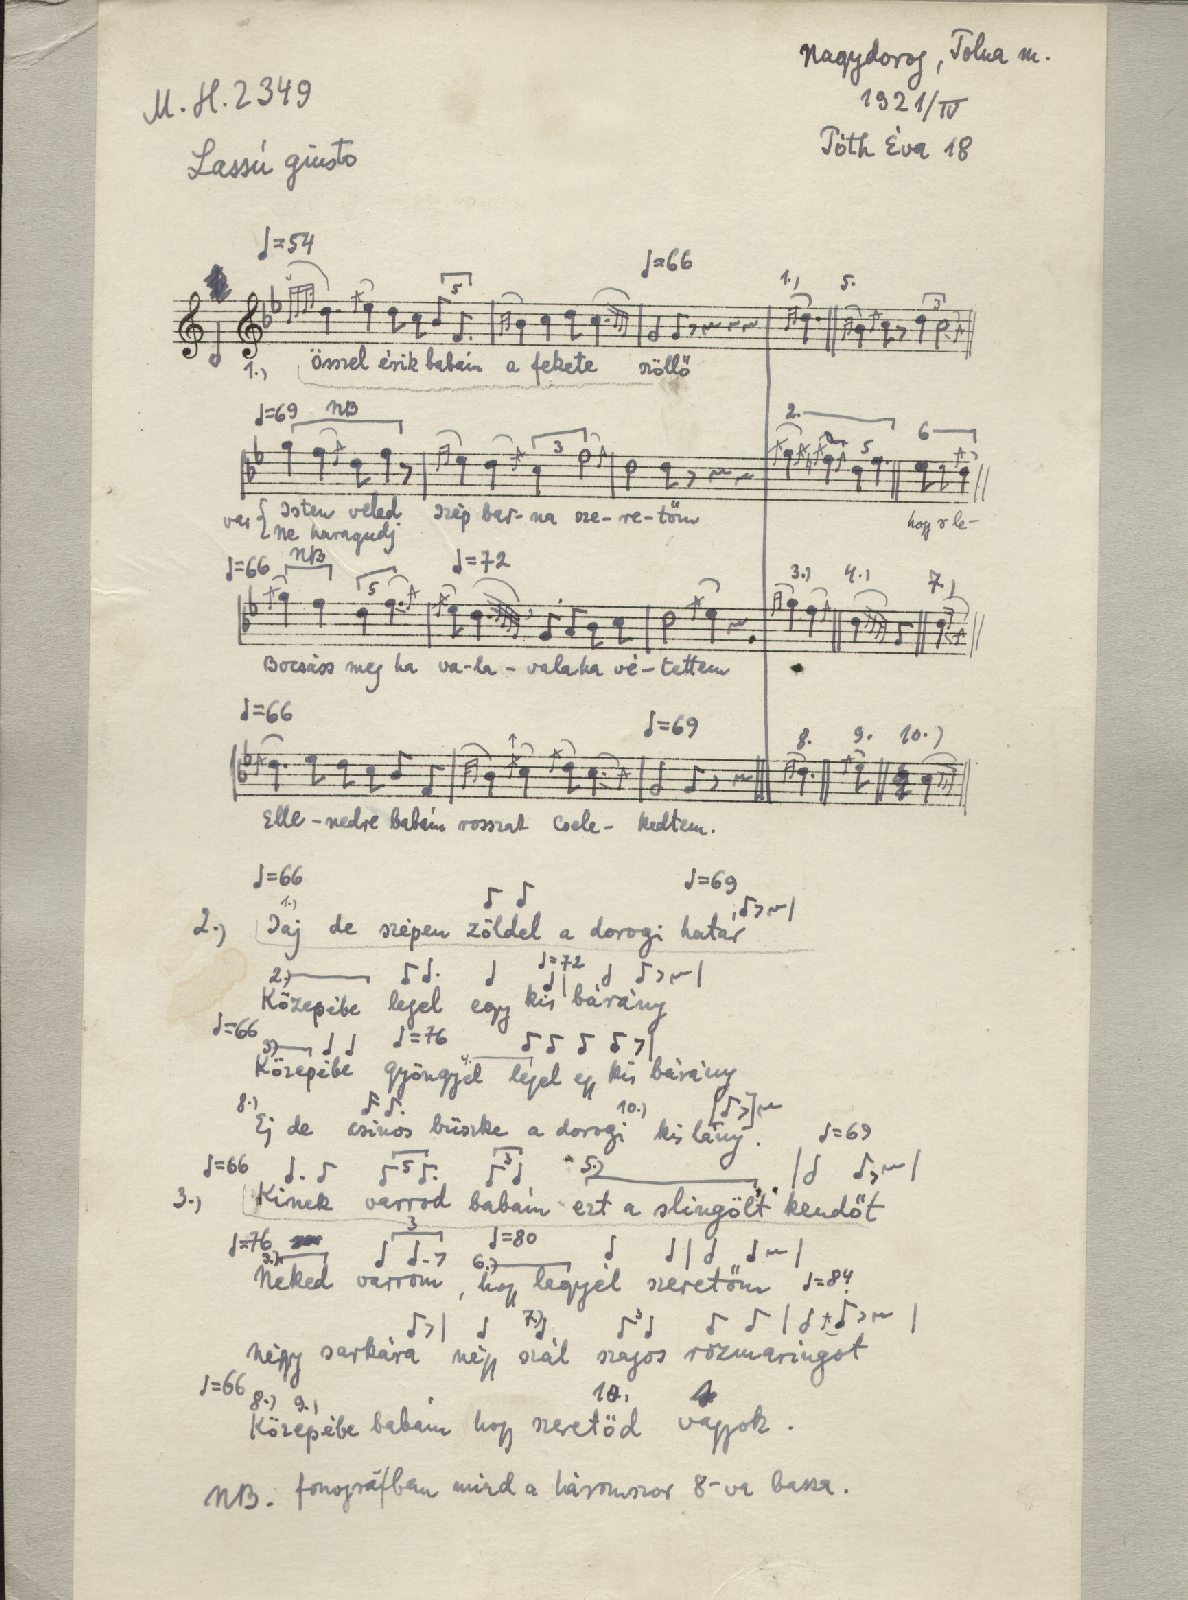 M.H. 2349
Nagydorog, Tolna m.
1921/IV
Tóth Éva 18
Lassú giusto
=54 =66 1.) 5.
5 3
1.) Ősszel érik babám a fekete szőllő
=69 NB 2. 6
3 5
var Isten veled szép bar-na sze-re-tőm
Ne haragudj hogy le-
=66 NB =72 3.) 4.) 7.)
5
Bocsáss meg ha va-la-valaha vé-tettem
=66 =69 8. 9. 10.)
Elle-nedre babám rosszat csele-kedtem.
=66 =69
1.)
2.) Jaj de szépen zöldel a dorogi határ
2.) =72
Közepébe legel egy kis bárány
=66 3.) =76 4.
Közepébe gyöngyél legel egy kis bárány
8.) 10.)
Ej de csinos büszke a dorogi kis lány.
=69
=66 5 3 5.)
3.) Kinek varrod babám ezt a slingölt kendőt
=76 3 =80 6.)
Neked varrom, hogy legyél szeretőm =84
7.) 3
négy sarkára négy szál szagos rozmaringot
=66 8.) 9.) 10.
Közepébe babám hogy szeretőd vagyok.
NB. fonográfban mind a háromszor 8-va bassa.